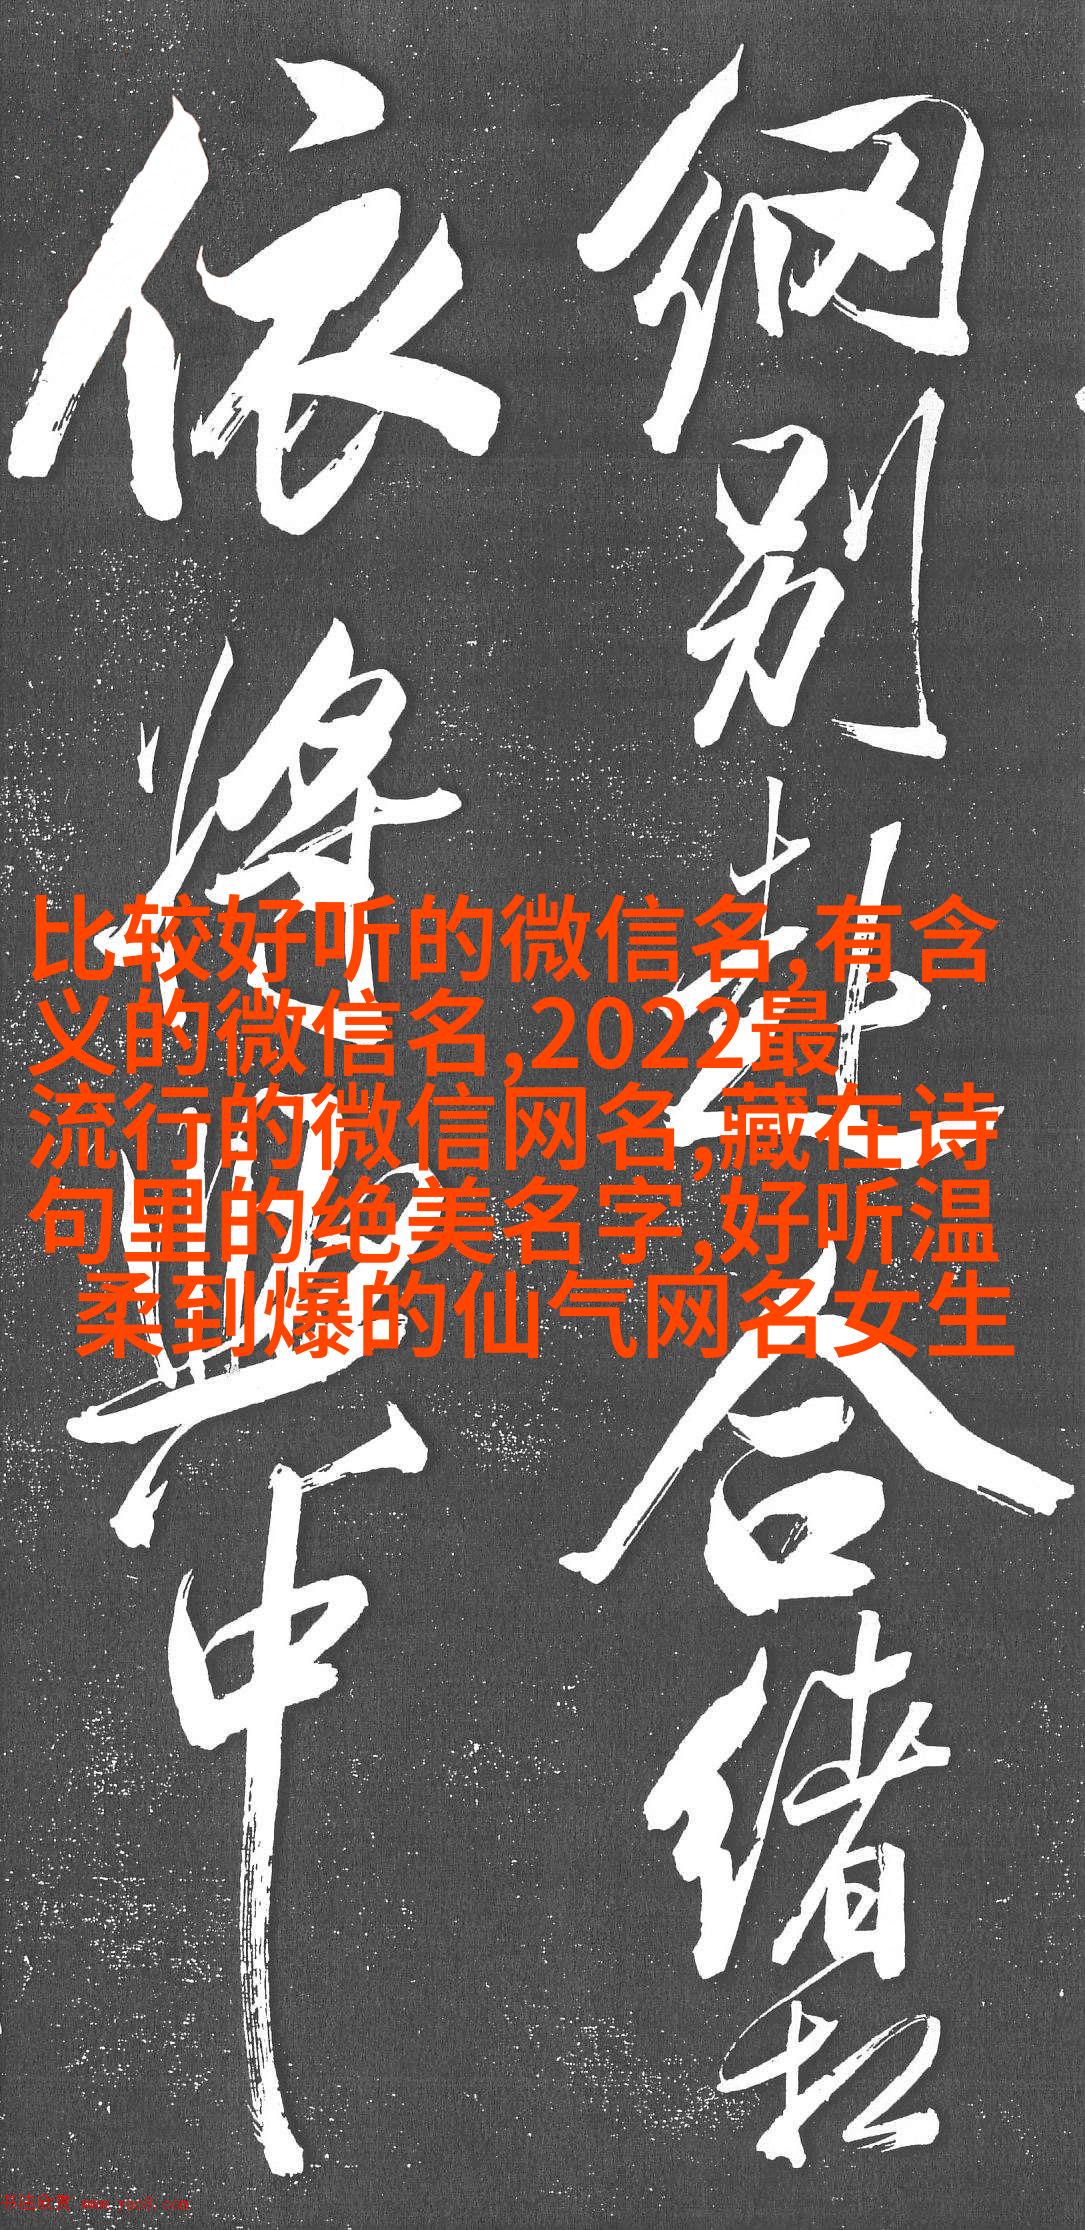 比较好听的微信名,有含
义的微信名,2022最
流行的微信网名,藏在诗
句里的绝美名字,好听温
柔到爆的仙气网名女生
别
合绪
依将
中
www.yac8.com